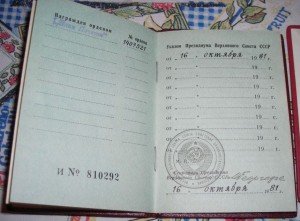 Награжден орденом
№ ордена
1401321
И № 810292
Указом Президиума Верховного Совета СССР
от 16 октября 1981.
от 19 г.
от 19 г.
от 19 г.
от 19 г.
от 19 г.
от 19 г.
от 19 г.
Секретарь Президиума
Верховного Совета
16 октября 1981.
FRUIT